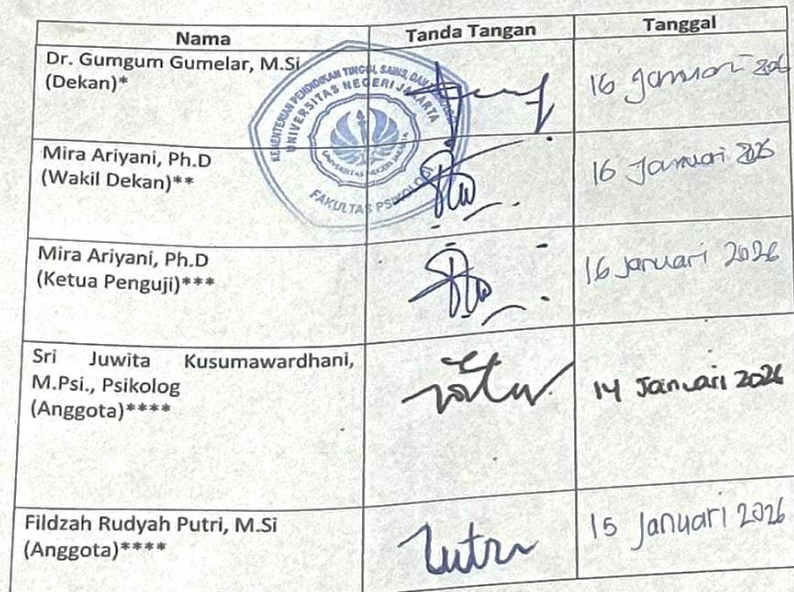 Nama Tanda Tangan Tanggal
Dr. Gumgum Gumelar, M.Si
(Dekan)*
16 Januari 2026
KEMENTERIAN PENDIDIKAN TINGGI, SAINS, DAN
UNIVERSITAS NEGERI JAKARTA
UNIVERSITAS NEGERI JAKARTA
FAKULTAS PSIKOLOGI
Mira Ariyani, Ph.D
(Wakil Dekan)**
16 Januari 2026
Mira Ariyani, Ph.D
(Ketua Penguji)***
16 Januari 2026
Sri Juwita Kusumawardhani,
M.Psi., Psikolog
(Anggota)****
14 Januari 2026
Fildzah Rudyah Putri, M.Si
(Anggota)****
15 Januari 2026